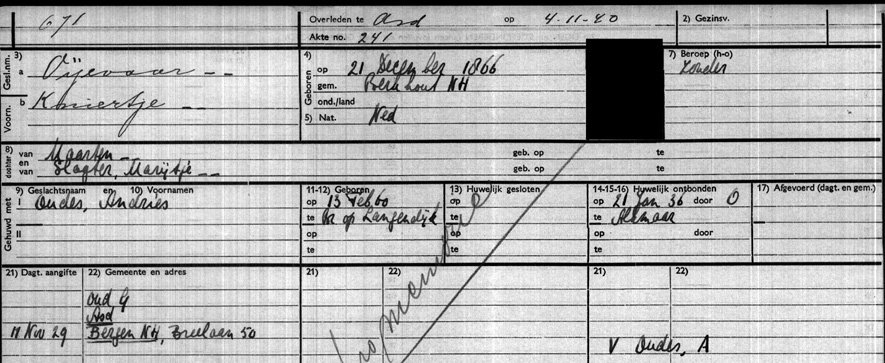 671
Overleden te Asd op 4-11-40 2) Gezinsv.
Akte no. 241
Gesl.nm. 3) a Ooyevaar
Voorn. b Kniertje
4) Geboren op 21 December 1866
gem. Berkhout NH
ond./land
5) Nat. Ned
7) Beroep (h-o)
Zonder
dochter 8) van Maarten geb. op te
en
van Slagter, Marijtje geb. op te
Gehuwd met 9) Geslachtsnaam en 10) Voornamen
I Oudes, Andries
II
11-12) Geboren
op 13 Feb 60
te Br op Langendijk
op
te
13) Huwelijk gesloten
op
te
op
te
14-15-16) Huwelijk ontbonden
op 21 Jan 36 door O
te Alkmaar
op door
te
17) Afgevoerd (dagt. en gem.)
21) Dagt. aangifte 22) Gemeente en adres 21) 22) 21) 22)
Oud G
Asd
11 Nov 29 Bergen NH, Breelaan 50
V Oudes, A